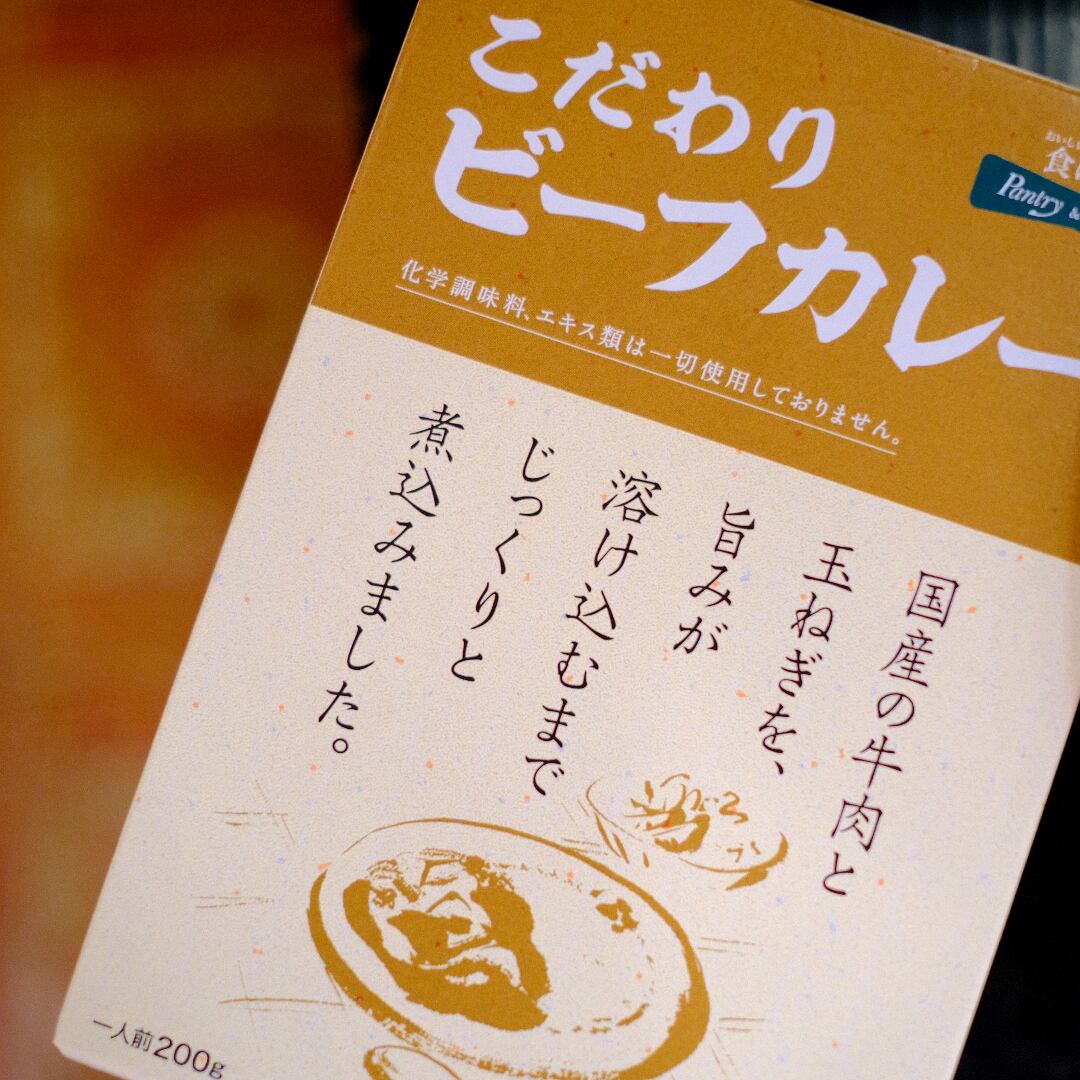 こだわり
ビーフカレー
化学調味料、エキス類は一切使用しておりません。
おいしい
Pantry &
国産の牛肉と
玉ねぎを、
旨みが
溶け込むまで
じっくりと
煮込みました。
一人前200g